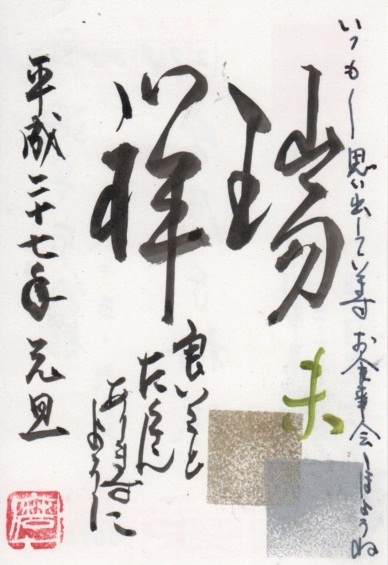 いつも思い出しています お食事会しましょうね
瑞祥
未
良いこと
たくさん
あります
ように
平成二十七年元旦